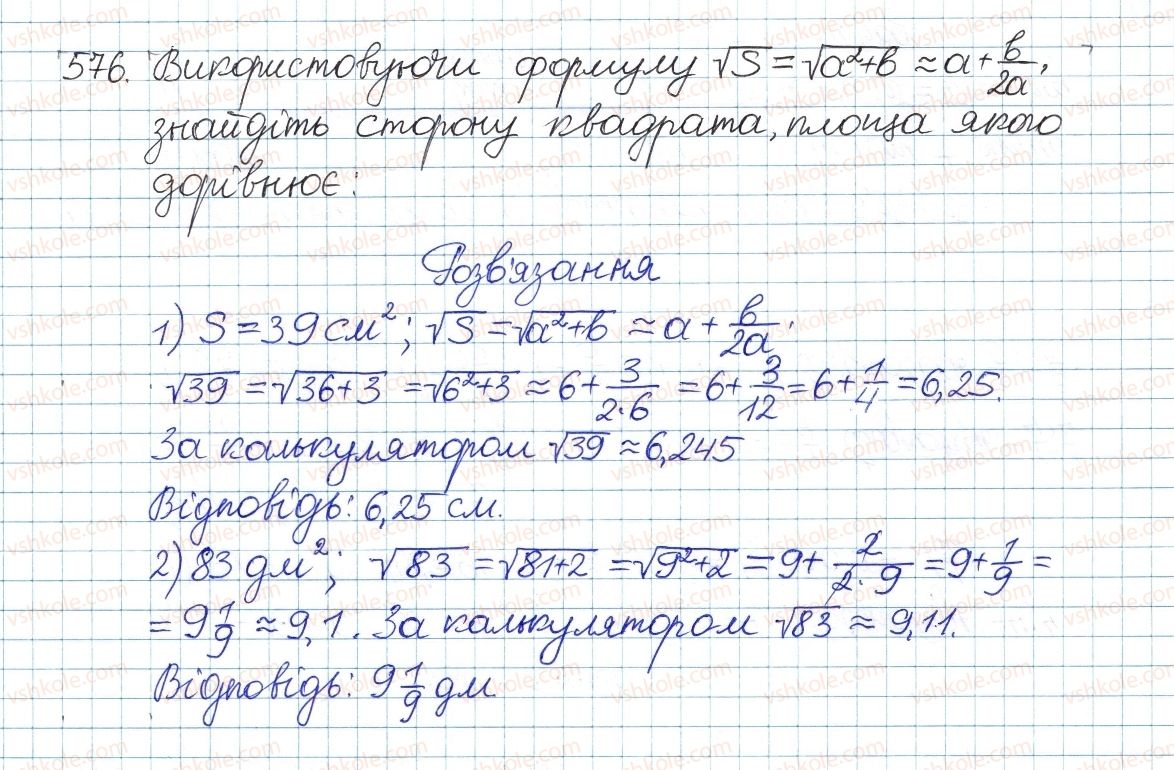 576. Використовуючи формулу √S = √a²+b ≈ a + b/2a,
знайдіть сторону квадрата, площа якого
дорівнює:
Розв'язання
1) S = 39 см²; √S = √a²+b ≈ a + b/2a.
√39 = √36+3 = √6²+3 ≈ 6 + 3/2·6 = 6 + 3/12 = 6 + 1/4 = 6,25.
За калькулятором √39 ≈ 6,245
Відповідь: 6,25 см.
2) 83 дм²; √83 = √81+2 = √9²+2 = 9 + 2/2·9 = 9 + 1/9 =
= 9 1/9 ≈ 9,1. За калькулятором √83 ≈ 9,11.
Відповідь: 9 1/9 дм